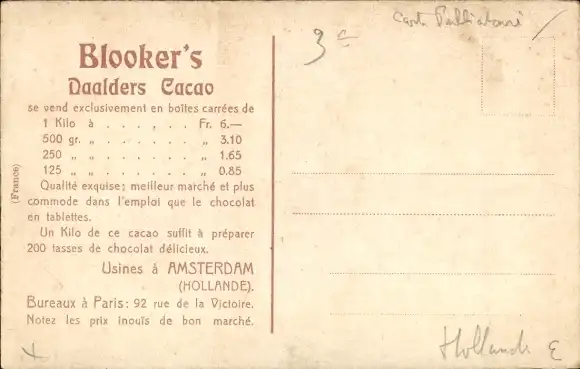 Blooker's
Daalders Cacao
se vend exclusivement en boîtes carrées de
1 Kilo à . . . , . . Fr. 6.—
500 gr. „ . . . . . . „ 3.10
250 „ „ . . . . . . „ 1.65
125 „ „ . . . . . . „ 0.85
Qualité exquise; meilleur marché et plus
commode dans l'emploi que le chocolat
en tablettes.
Un Kilo de ce cacao suffit à préparer
200 tasses de chocolat délicieux.
Usines à AMSTERDAM
(HOLLANDE).
Bureaux à Paris: 92 rue de la Victoire.
Notez les prix inouïs de bon marché.
(France)
3
Hollande E